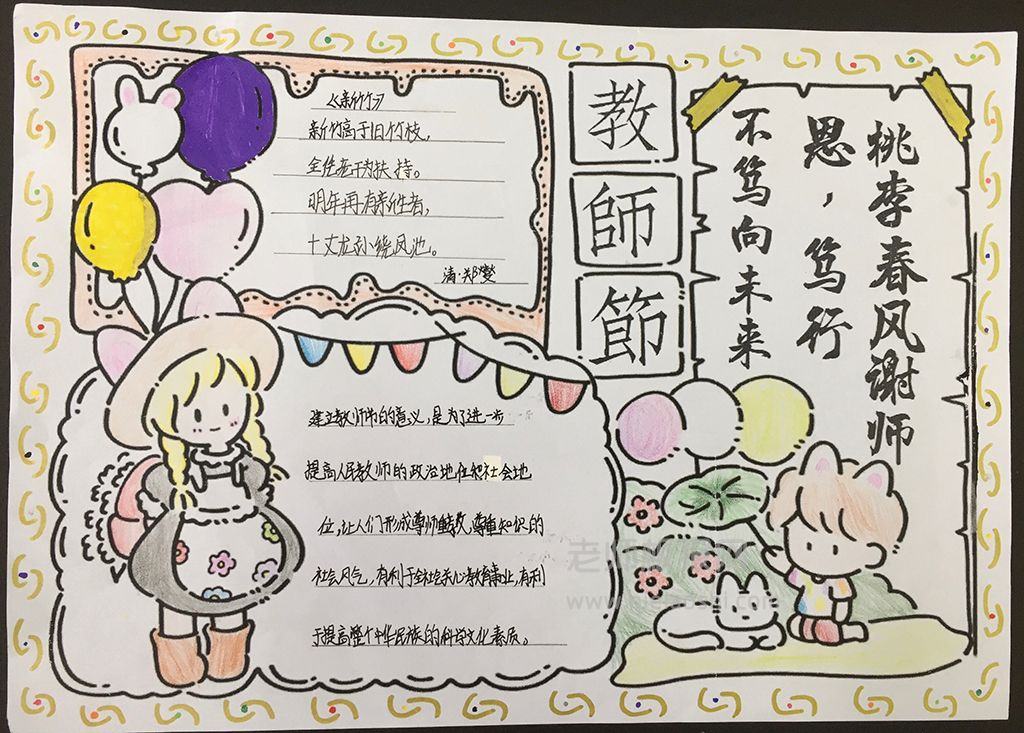 《新竹》
新竹高于旧竹枝，
全凭老干为扶持。
明年再有新生者，
十丈龙孙绕凤池。
清·郑燮
教
師
節
桃李春风谢师
恩，笃行
不笃向未来
建立教师节的意义，是为了进一步
提高人民教师的政治地位和社会地
位，让人们形成尊师重教、尊重知识的
社会风气，有利于全社会关心教育事业，有利
于提高整个中华民族的科学文化素质。